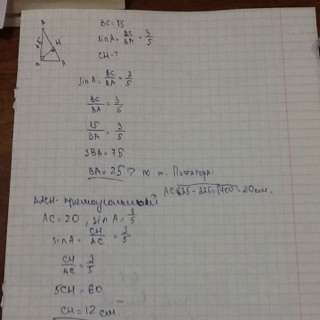 B
H
A
BC=15
sinA = BC/BA = 3/5
CH-?
sinA = BC/BA = 3/5
BC/BA = 3/5
15/BA = 3/5
3BA = 75
BA = 25 ⇒ по т. Пифагора
AC = √400 = 20см.
прямоугольный
AC = 20, sinA = 3/5
sinA = CH/AC = 3/5
CH/AC = 3/5
5CH = 60
CH = 12 см